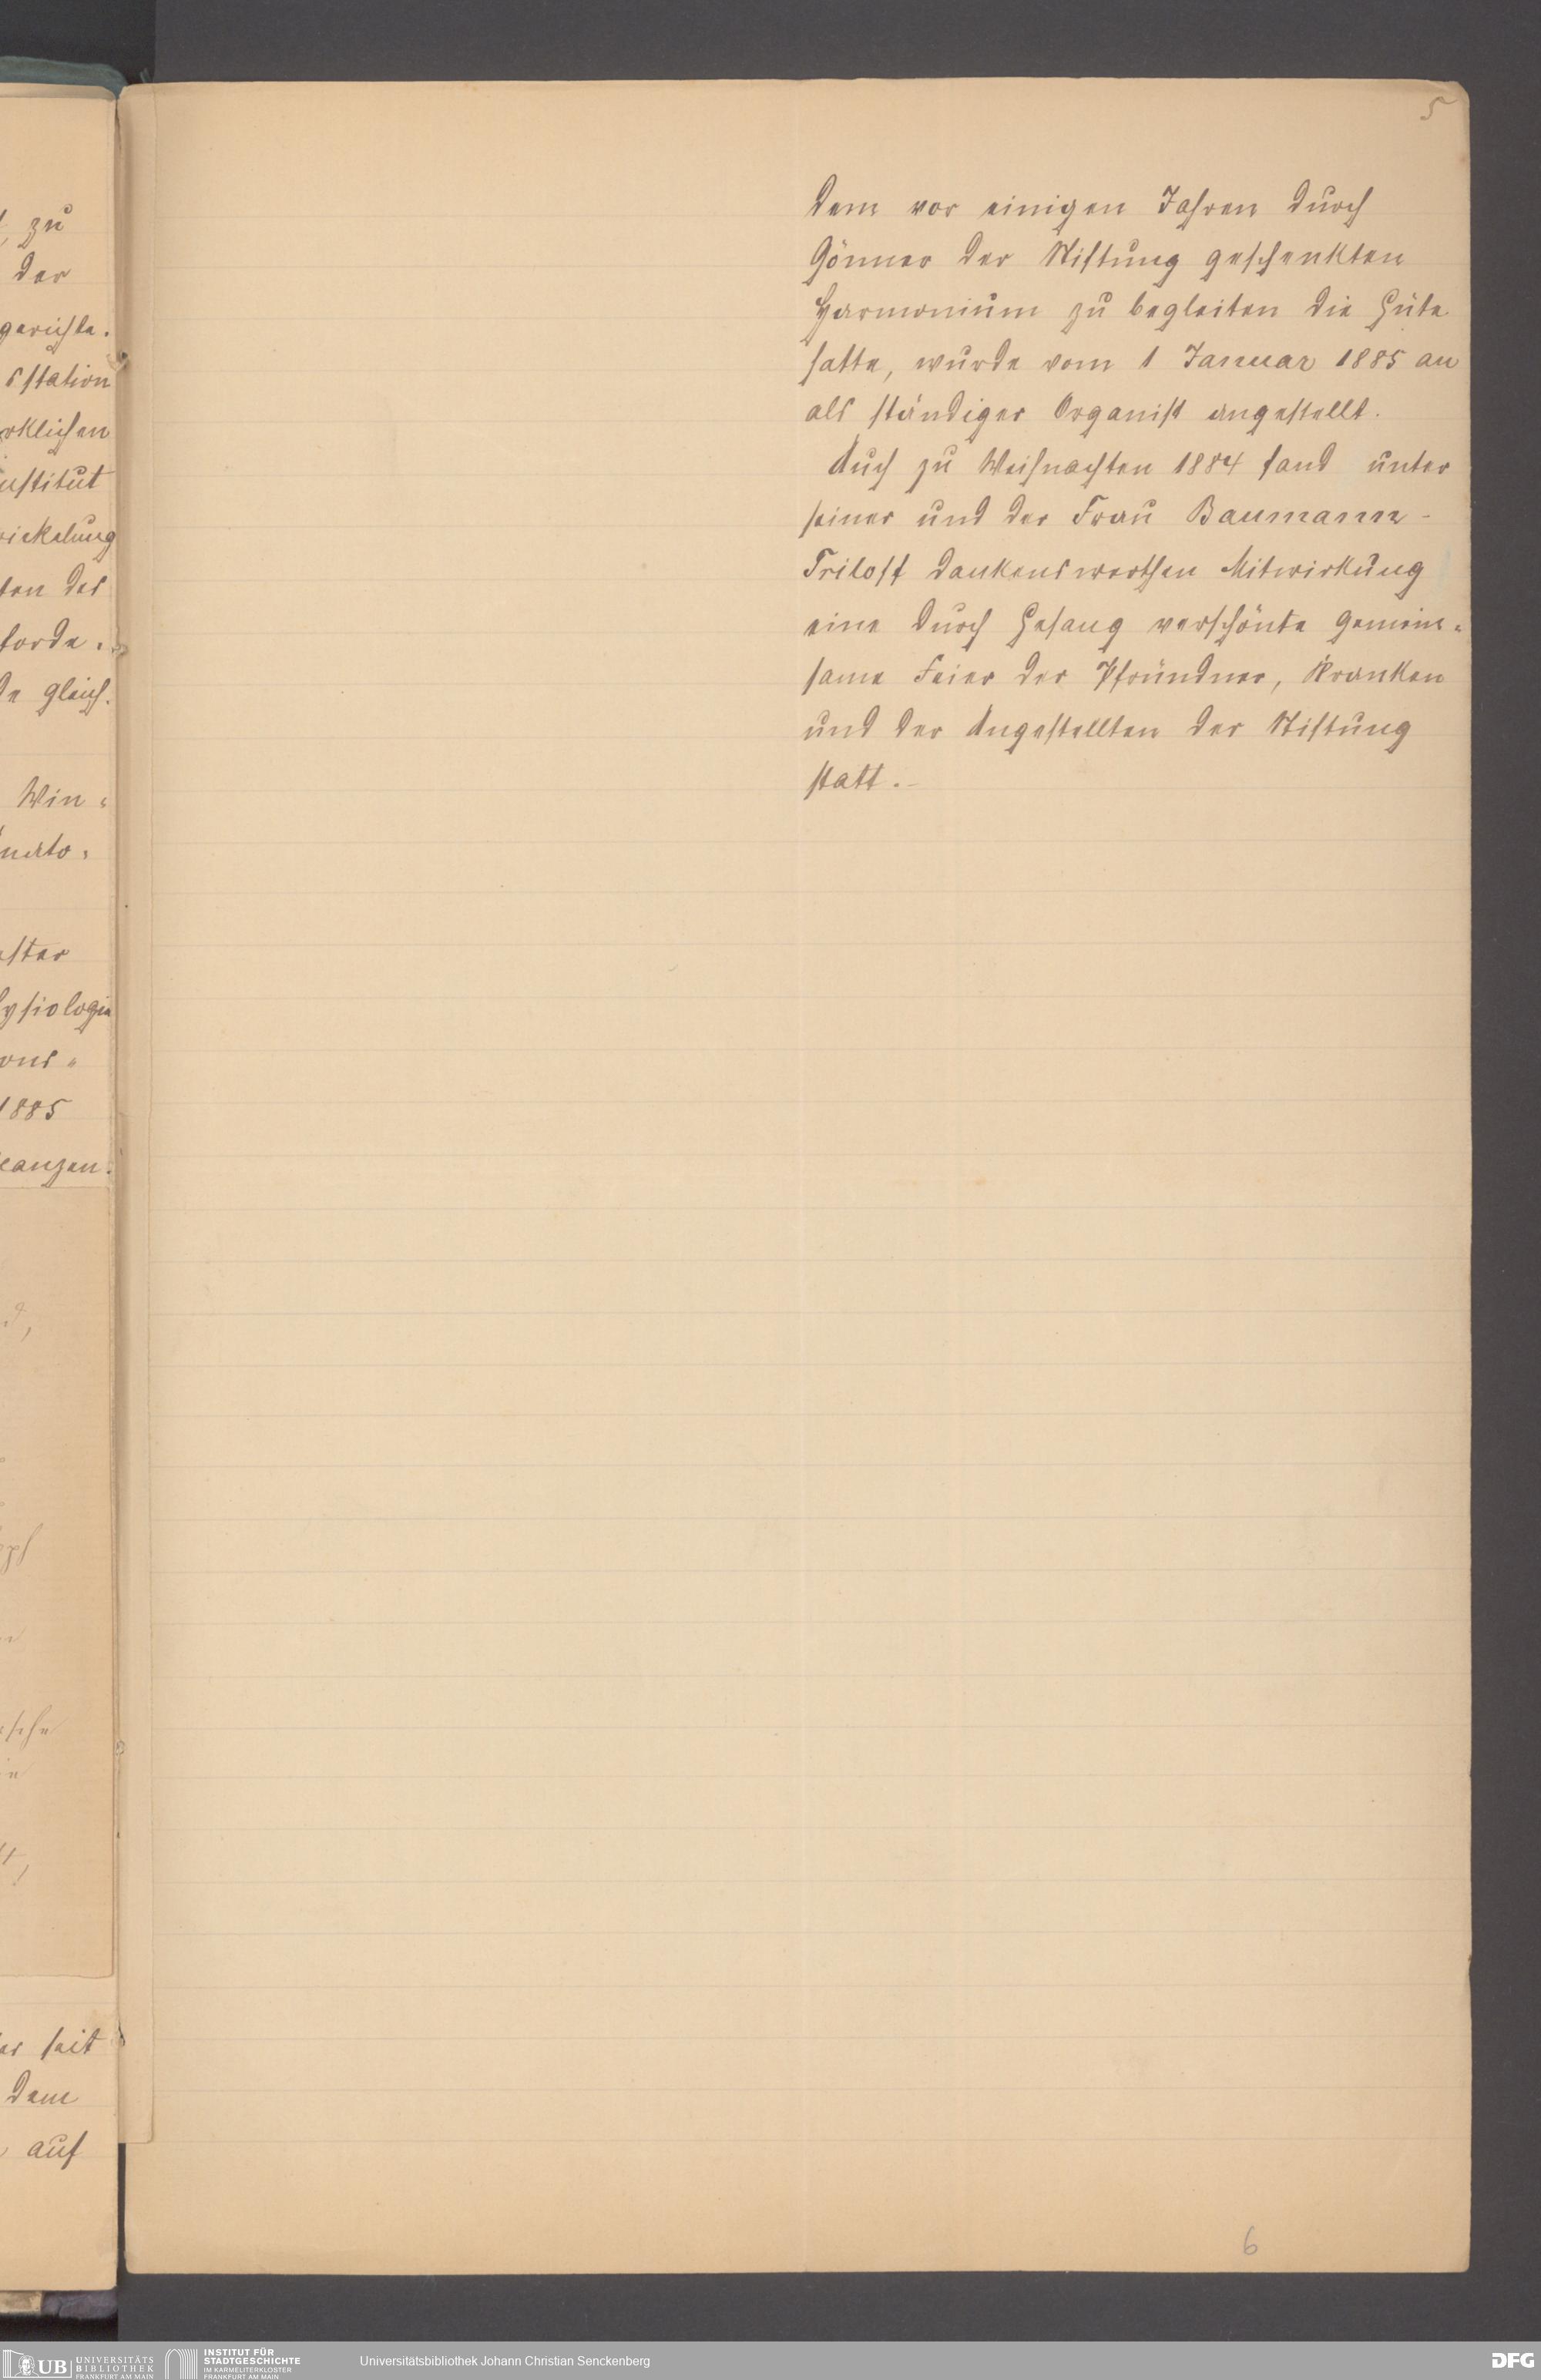 zu
der
gerichte.
sstation
rklichen
nstitut
wickelung
ten des
forde.
de gleich.
Win-
ysiologie
1885
seit
dem
auf
5
dem vor einigen Jahren durch
Gönner der Stiftung geschenkten
Harmonium zu begleiten die Güte
hatte, wurde vom 1 Januar 1885 an
als ständiger Organist angestellt.
Auch zu Weihnachten 1884 fand unter
seiner und der Frau Baumann-
Triloff dankenswerthen Mitwirkung
eine durch Gesang verschönte gemein-
same Feier der Pfründner, Kranken
und der Angestellten der Stiftung
statt.-
6
UB UNIVERSITÄTS
BIBLIOTHEK
FRANKFURT AM MAIN
INSTITUT FÜR
STADTGESCHICHTE
IM KARMELITERKLOSTER
FRANKFURT AM MAIN
Universitätsbibliothek Johann Christian Senckenberg
DFG